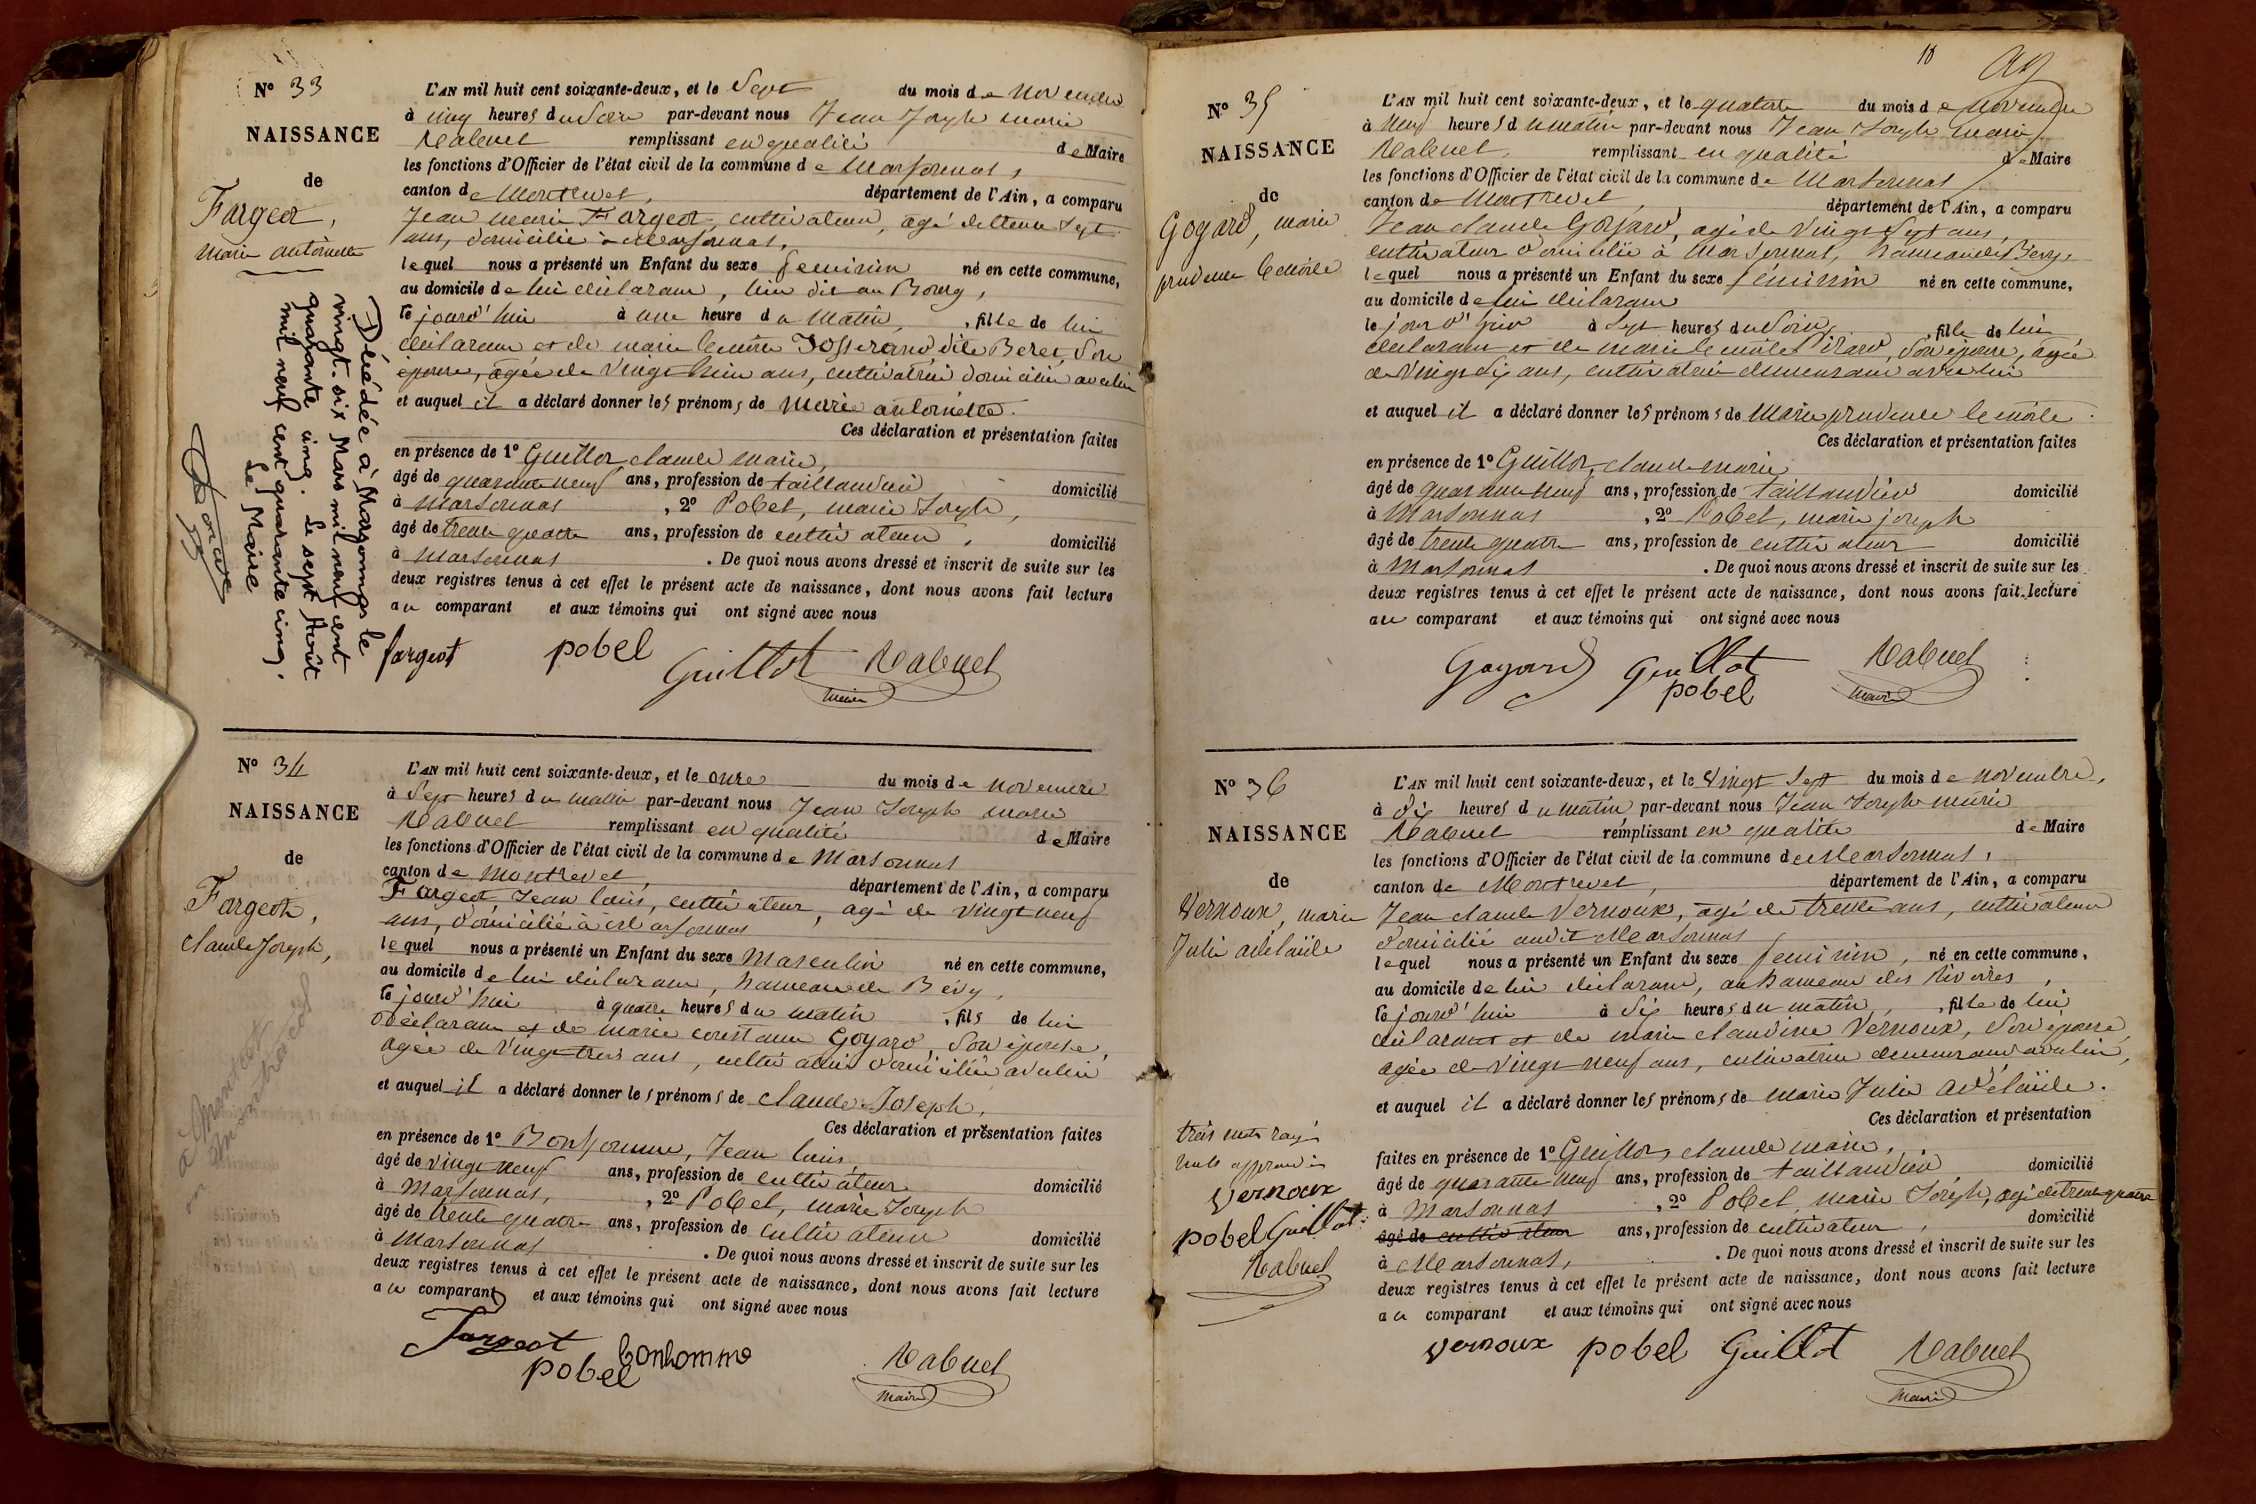 Nº 33
NAISSANCE
de
Fargeot,
marie antoinette
L'AN mil huit cent soixante-deux, et le Sept du mois de Novembre
à cinq heures du Soir par-devant nous Jean Joseph marie
Rabuel remplissant en qualité de Maire
les fonctions d'Officier de l'état civil de la commune de Marsonnas,
canton de Montrevel, département de l'Ain, a comparu
Jean marie Fargeot, cultivateur, agé de trente Sept
ans, domicilié à Marsonnas,
lequel nous a présenté un Enfant du sexe feminin né en cette commune,
au domicile de lui déclarant, lieu dit au Bourg,
le jourd'hui à une heure du Matin, fille de lui
déclarant et de marie Josserand dite Beret, Son
épouse, agée de vingt huit ans, cultivatrice domiciliée avec lui
et auquel il a déclaré donner les prénoms de Marie antoinette.
Ces déclaration et présentation faites
en présence de 1º Guillot, claude marie,
âgé de quarante neuf ans, profession de taillandier domicilié
à Marsonnas, 2º Pobel, marie Joseph,
âgé de trente quatre ans, profession de cultivateur, domicilié
à Marsonnas. De quoi nous avons dressé et inscrit de suite sur les
deux registres tenus à cet effet le présent acte de naissance, dont nous avons fait lecture
au comparant et aux témoins qui ont signé avec nous
fargeot pobel Guillot Rabuel
maire
Décédée à Marsonnas le
vingt-six Mars mil neuf cent
quarante cinq. Le sept Août
mil neuf cent quarante cinq.
Le Maire
Nº 34
NAISSANCE
de
Fargeot,
claude Joseph,
L'AN mil huit cent soixante-deux, et le onze du mois de Novembre
à Sept heures du matin par-devant nous Jean Joseph marie
Rabuel remplissant en qualité de Maire
les fonctions d'Officier de l'état civil de la commune de Marsonnas
canton de Montrevel, département de l'Ain, a comparu
Fargeot, Jean louis, cultivateur, agé de vingt neuf
ans, domicilié à Marsonnas
lequel nous a présenté un Enfant du sexe Masculin né en cette commune,
au domicile de lui déclarant, hameau de Bévy,
le jourd'hui à quatre heures du matin, fils de lui
déclarant et de marie constance Goyard, Son épouse,
agée de vingt trois ans, cultivatrice domiciliée avec lui
et auquel il a déclaré donner les prénoms de claude Joseph,
Ces déclaration et présentation faites
en présence de 1º Bonhomme, Jean louis
âgé de vingt neuf ans, profession de cultivateur domicilié
à Marsonnas, 2º Pobel, marie Joseph
âgé de trente quatre ans, profession de cultivateur domicilié
à Marsonnas. De quoi nous avons dressé et inscrit de suite sur les
deux registres tenus à cet effet le présent acte de naissance, dont nous avons fait lecture
au comparant et aux témoins qui ont signé avec nous
Fargeot bonhomme
pobel Rabuel
maire
18
Nº 35
NAISSANCE
de
Goyard, marie
prudence
L'AN mil huit cent soixante-deux, et le quatorze du mois de Novembre
à Neuf heures du matin par-devant nous Jean Joseph marie
Rabuel, remplissant en qualité de Maire
les fonctions d'Officier de l'état civil de la commune de Marsonnas,
canton de Montrevel, département de l'Ain, a comparu
Jean claude Goyard, agé de vingt Sept ans,
cultivateur domicilié à Marsonnas, hameau de Bévy,
lequel nous a présenté un Enfant du sexe féminin né en cette commune,
au domicile de lui déclarant
le jour d'hier à Sept heures du Soir, fille de lui
déclarant et de marie Pirard, Son épouse, agée
de vingt Six ans, cultivatrice demeurant avec lui
et auquel il a déclaré donner les prénoms de Marie prudence
Ces déclaration et présentation faites
en présence de 1º Guillot, claude marie
âgé de quarante neuf ans, profession de taillandier domicilié
à Marsonnas, 2º Pobel, marie joseph
âgé de trente quatre ans, profession de cultivateur domicilié
à Marsonnas. De quoi nous avons dressé et inscrit de suite sur les
deux registres tenus à cet effet le présent acte de naissance, dont nous avons fait lecture
au comparant et aux témoins qui ont signé avec nous
Goyard Guillot Rabuel
pobel maire
Nº 36
NAISSANCE
de
Vernoux, marie
Julie adélaïde
L'AN mil huit cent soixante-deux, et le vingt Sept du mois de novembre,
à dix heures du matin par-devant nous Jean Joseph marie
Rabuel remplissant en qualité de Maire
les fonctions d'Officier de l'état civil de la commune de Marsonnas,
canton de Montrevel, département de l'Ain, a comparu
Jean claude Vernoux, agé de trente ans, cultivateur
domicilié audit Marsonnas
lequel nous a présenté un Enfant du sexe feminin, né en cette commune,
au domicile de lui déclarant, au hameau des Rivoires,
le jourd'hui à Six heures du matin, fille de lui
déclarant et de marie claudine Vernoux, Son épouse,
agée de vingt neuf ans, cultivatrice demeurant avec lui,
et auquel il a déclaré donner les prénoms de marie Julie adélaïde.
Ces déclaration et présentation
faites en présence de 1º Guillot, claude marie,
âgé de quarante neuf ans, profession de taillandier domicilié
à Marsonnas, 2º Pobel, marie Joseph, agé de trente quatre
âgé de cultivateur ans, profession de cultivateur, domicilié
à Marsonnas,. De quoi nous avons dressé et inscrit de suite sur les
deux registres tenus à cet effet le présent acte de naissance, dont nous avons fait lecture
au comparant et aux témoins qui ont signé avec nous
vernoux pobel Guillot Rabuel
maire
trois mots rayés
nuls approuvés
vernoux
pobel Guillot
Rabuel